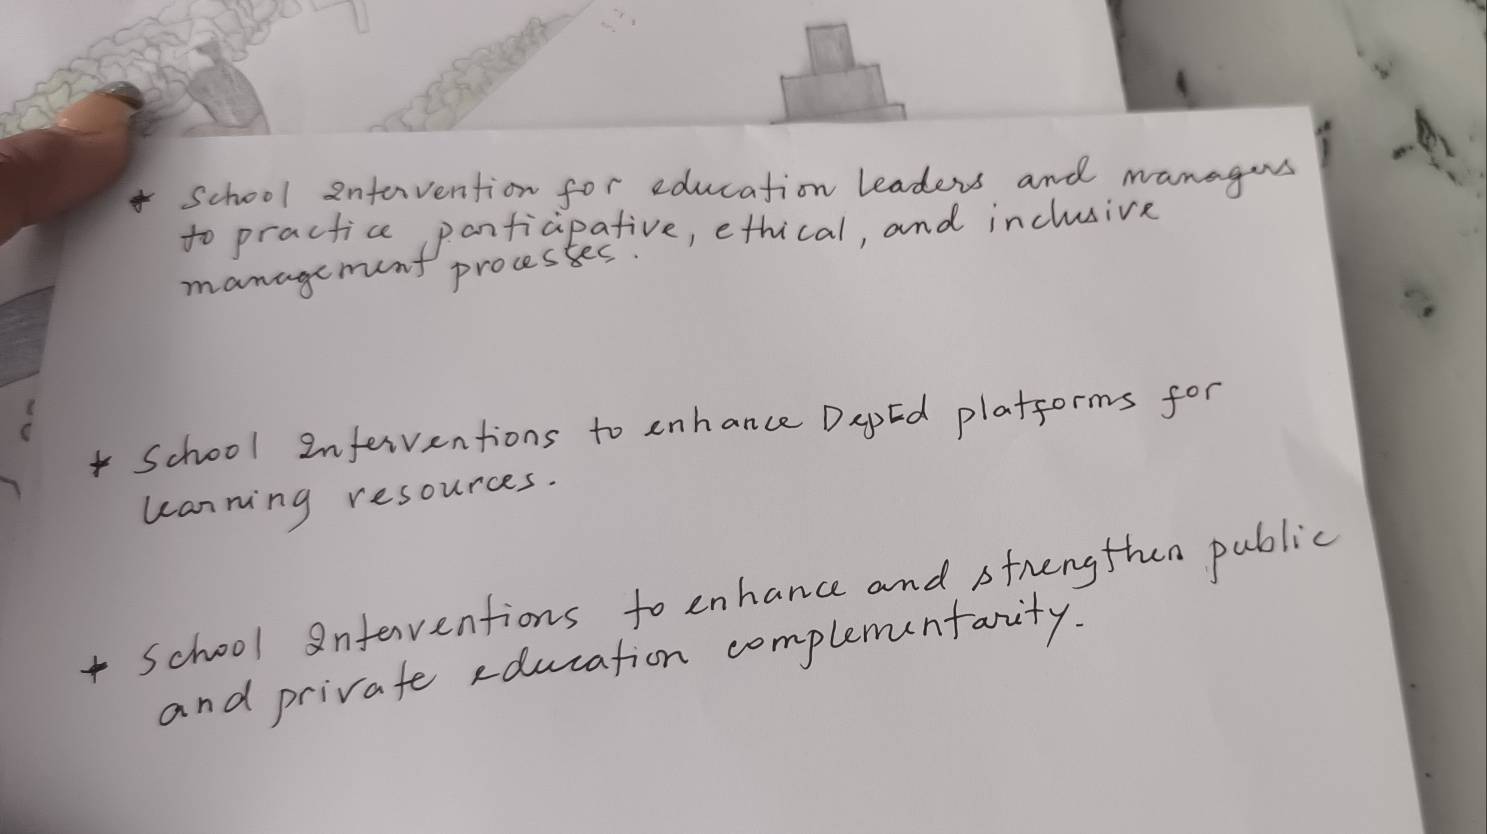 * School Intervention for education leaders and managers
to practice participative, ethical, and inclusive
management processes.
* School Interventions to enhance DepEd platforms for
learning resources.
* School Interventions to enhance and strengthen public
and private education complementarity.